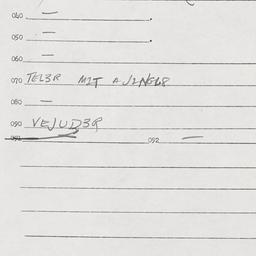 040 —
050 —
060 —
070 TEL3R MIT A JINGL8
080 —
090 VEJUD3R
091 092 —